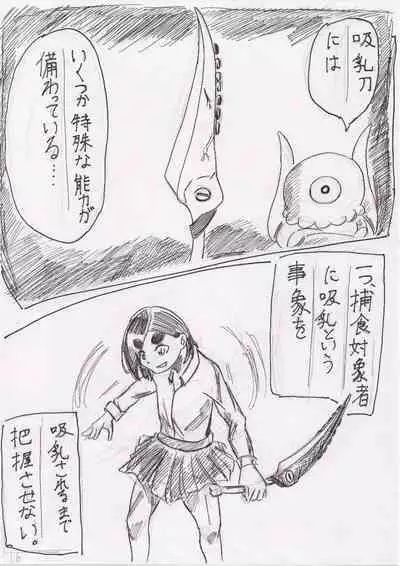 吸乳刀
には
いくつか特殊な能力が
備わっている…
一つ、捕食対象者
に吸乳という
事象を
吸乳されるまで
把握させない。
16